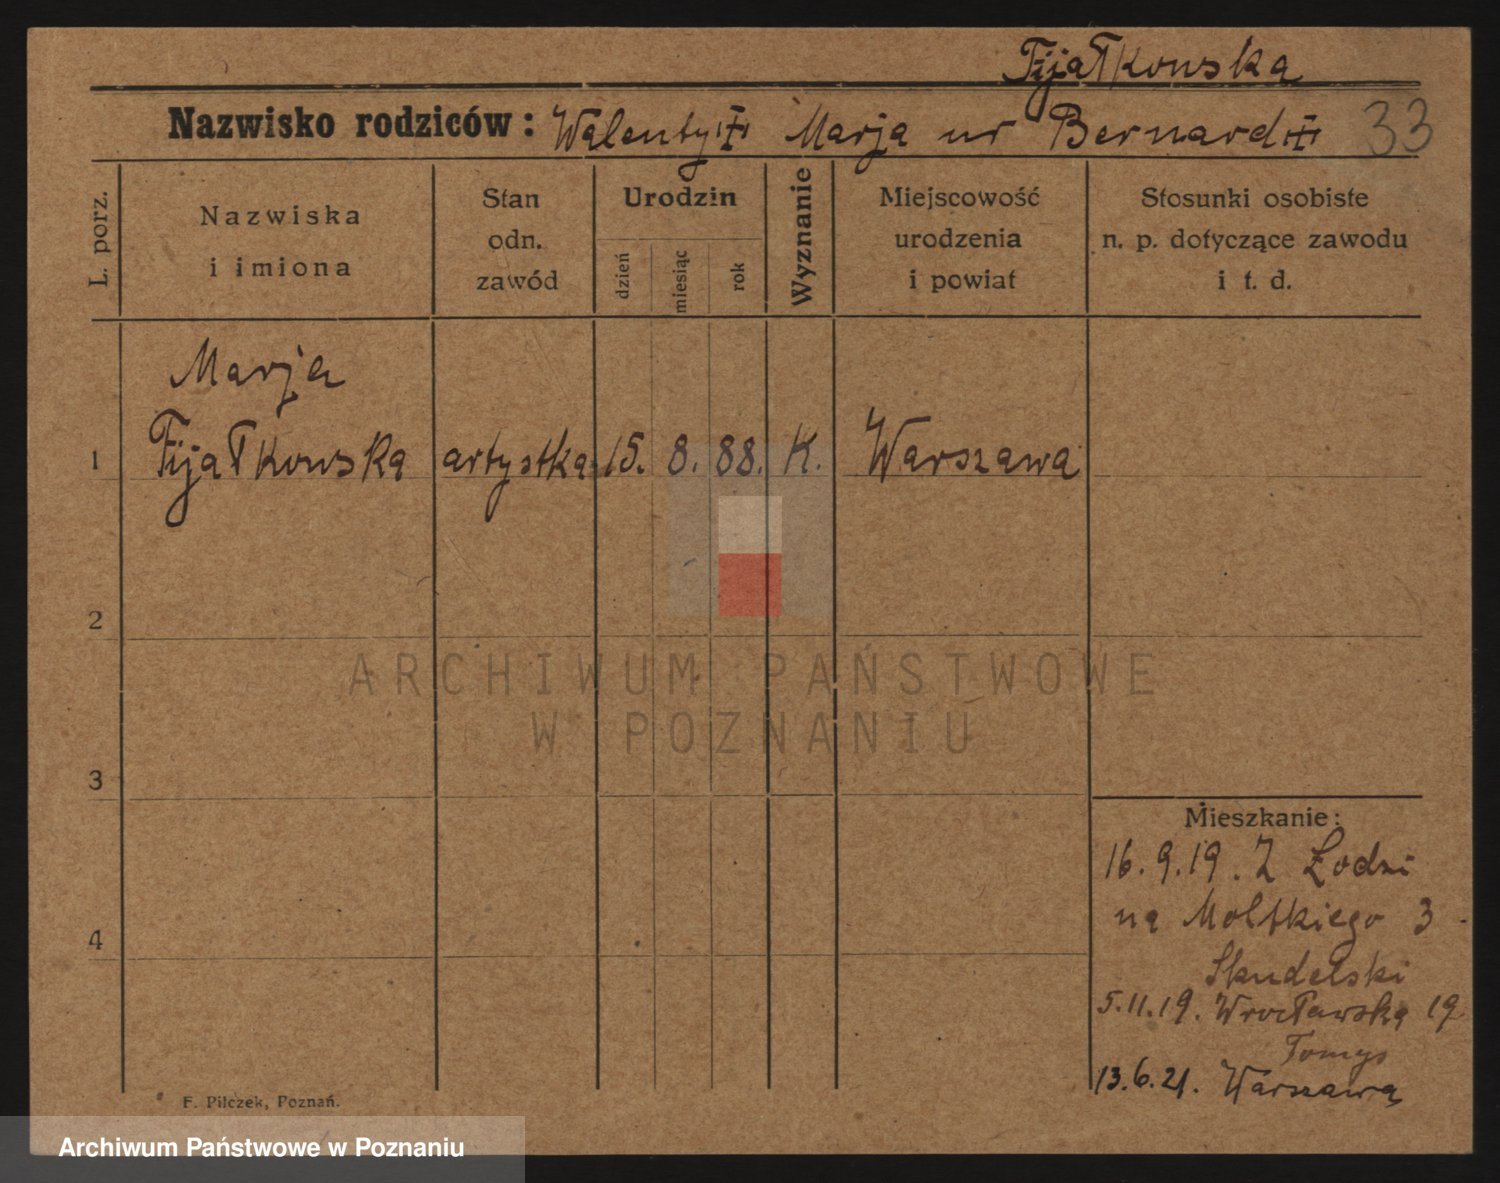 Fijałkowska
Nazwisko rodziców: Walenty Marja ur Bernard 33
L. porz.
Nazwiska
i imiona
Stan
odn.
zawód
Urodzin
dzień
miesiąc
rok
Wyznanie
Miejscowość
urodzenia
i powiat
Stosunki osobiste
n. p. dotyczące zawodu
i t. d.
Marja
1 Fijałkowska artystka 15. 8. 88. K. Warszawa
2
ARCHIWUM PAŃSTWOWE
W POZNANIU
3
Mieszkanie:
16.9.19. Z Łodzi
na Moltkiego 3
4
Skudelski
5.11.19. Wrocławska 19
Tomys
13.6.21. Warszawa
F. Pilczek, Poznań.
Archiwum Państwowe w Poznaniu